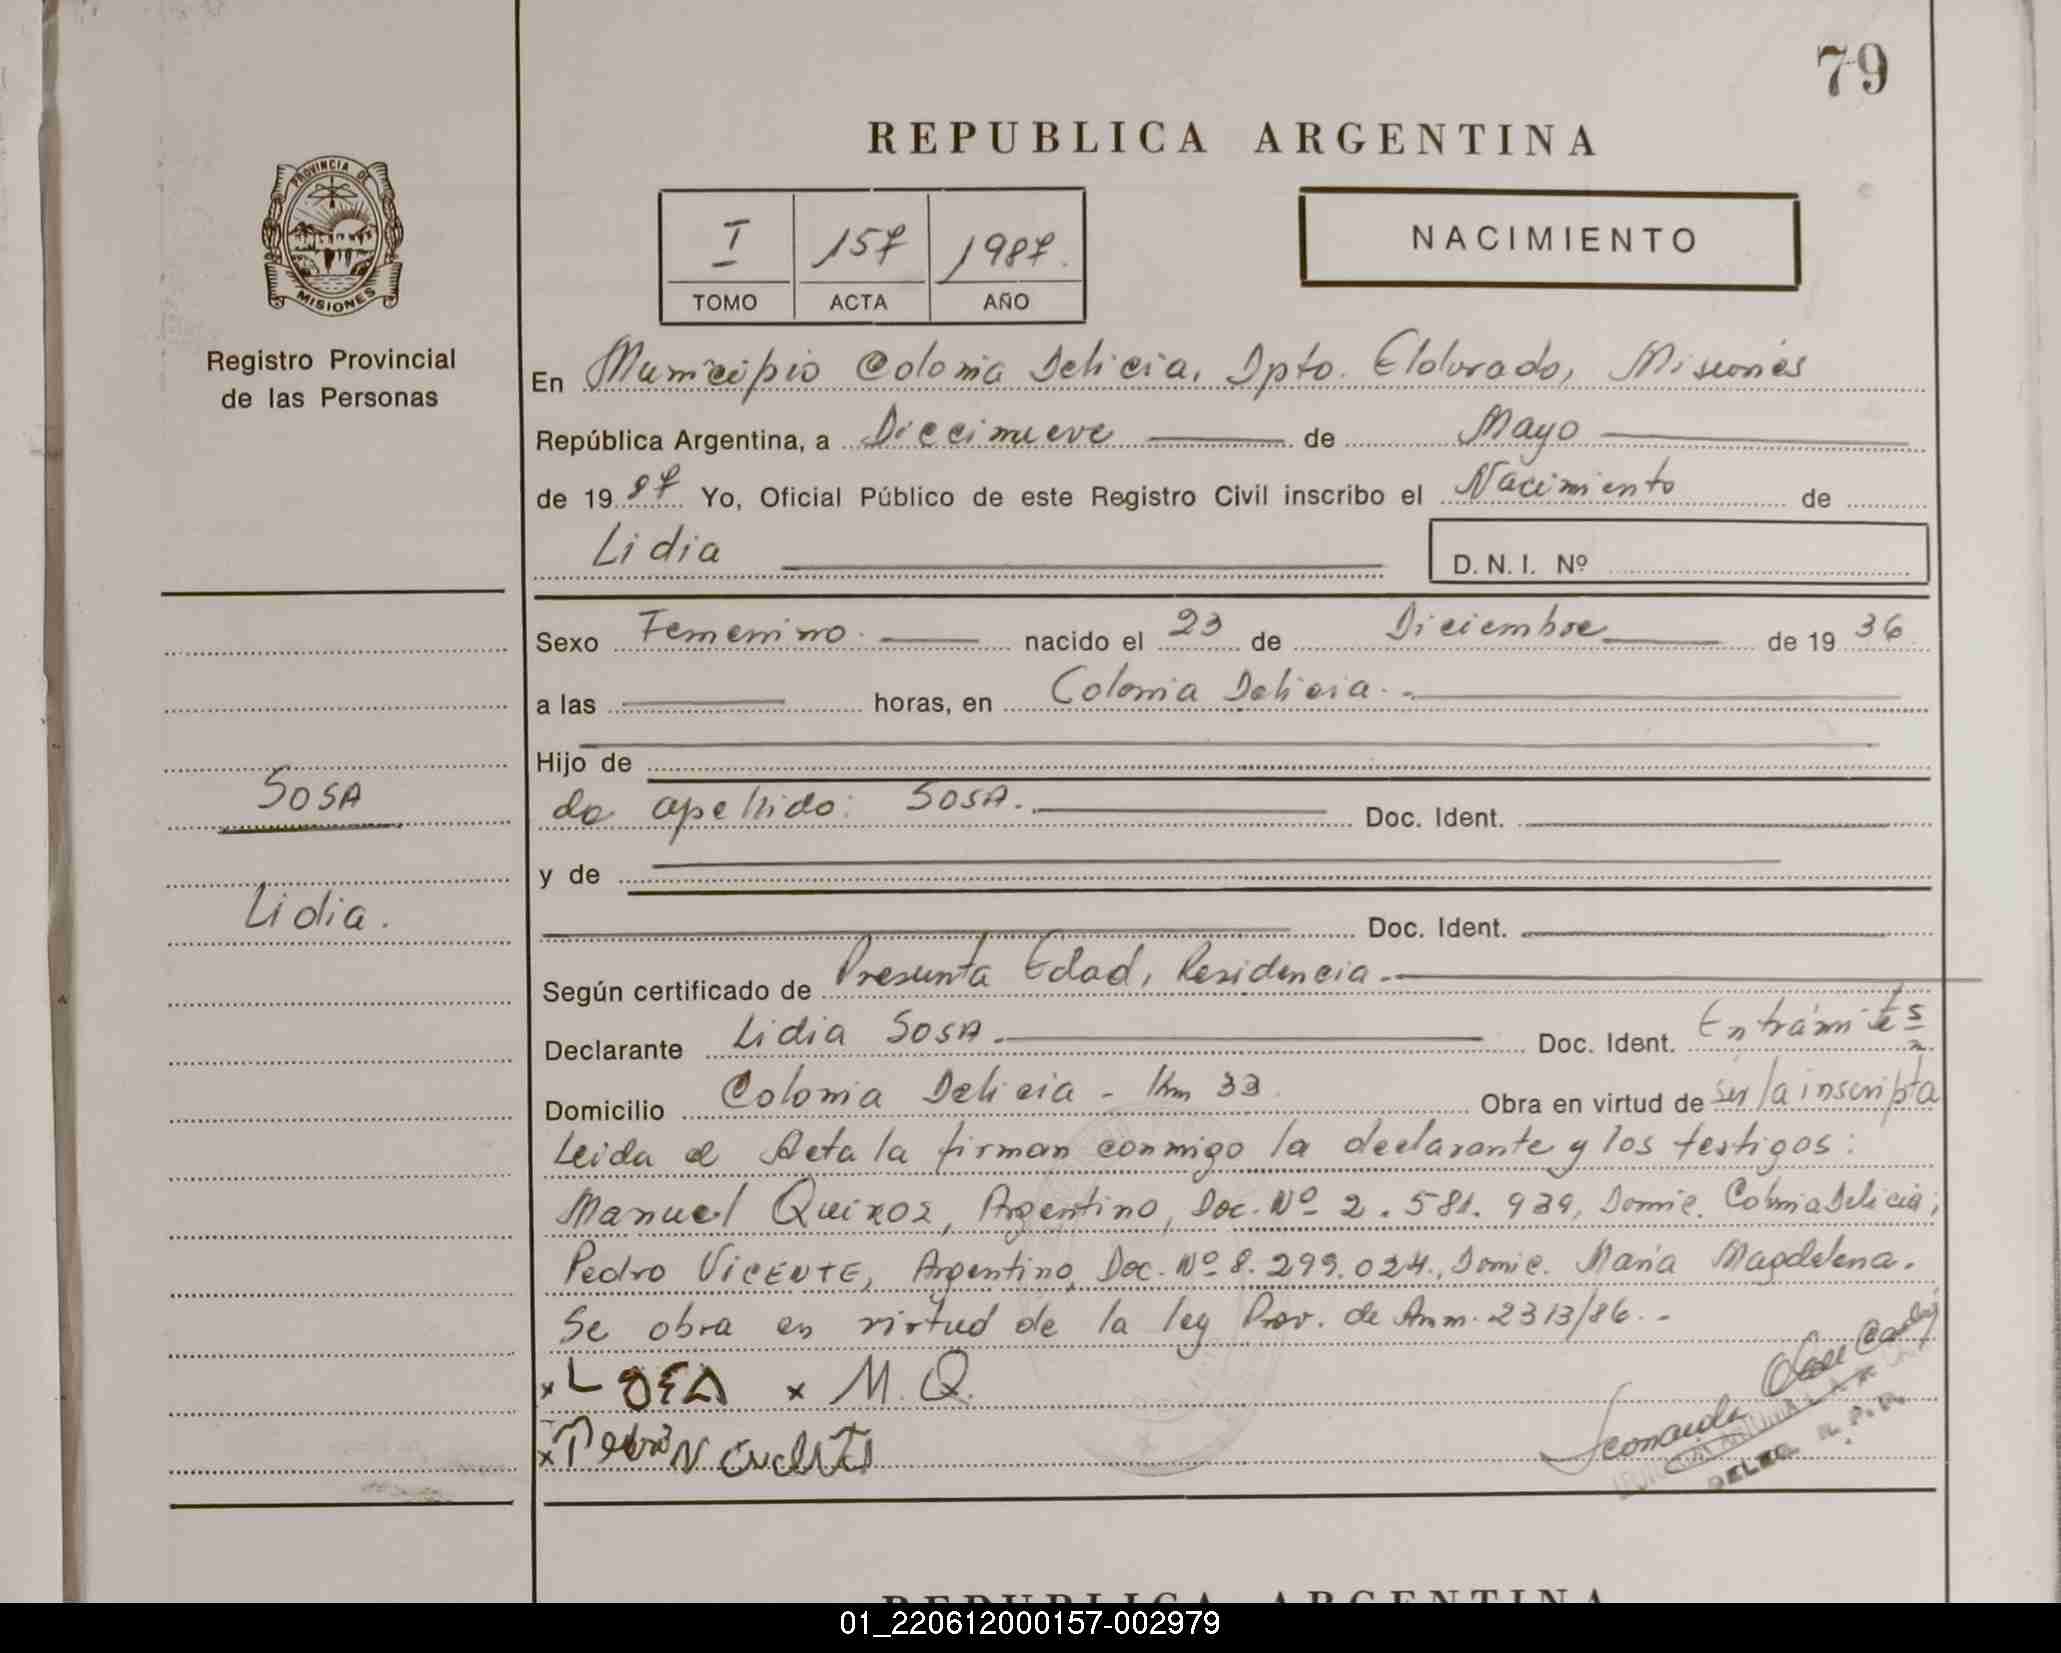 79
REPUBLICA ARGENTINA
PROVINCIA DE
MISIONES
Registro Provincial
de las Personas
I 157 1987.
TOMO ACTA AÑO
NACIMIENTO
En Municipio Colonia Delicia, Dpto. Eldorado, Misiones
República Argentina, a Diecinueve de Mayo
de 19 87 Yo, Oficial Público de este Registro Civil inscribo el Nacimiento de
Lidia
D. N. I. Nº
Sexo Femenino. nacido el 23 de Diciembre de 19 36
a las horas, en Colonia Delicia.
Hijo de
SOSA
de apellido: SOSA. Doc. Ident.
y de
Lidia.
Doc. Ident.
Según certificado de Presunta Edad, Residencia.
Declarante Lidia SOSA. Doc. Ident. Entrámites
Domicilio Colonia Delicia - Km 33 Obra en virtud de ser la inscripta
Leida el Acta la firman conmigo la declarante y los testigos:
Manuel QuiROZ, Argentino, Doc. Nº 2.581.939, Domic. Colonia Delicia;
Pedro VICENTE, Argentino, Doc. Nº 8.299.024., Domic. María Magdelena.
Se obra en virtud de la ley Prov. de Amn. 2313/86.-
x x M. Q.
x
DELEG. R. P. P.
REPUBLICA ARGENTINA
01_220612000157-002979